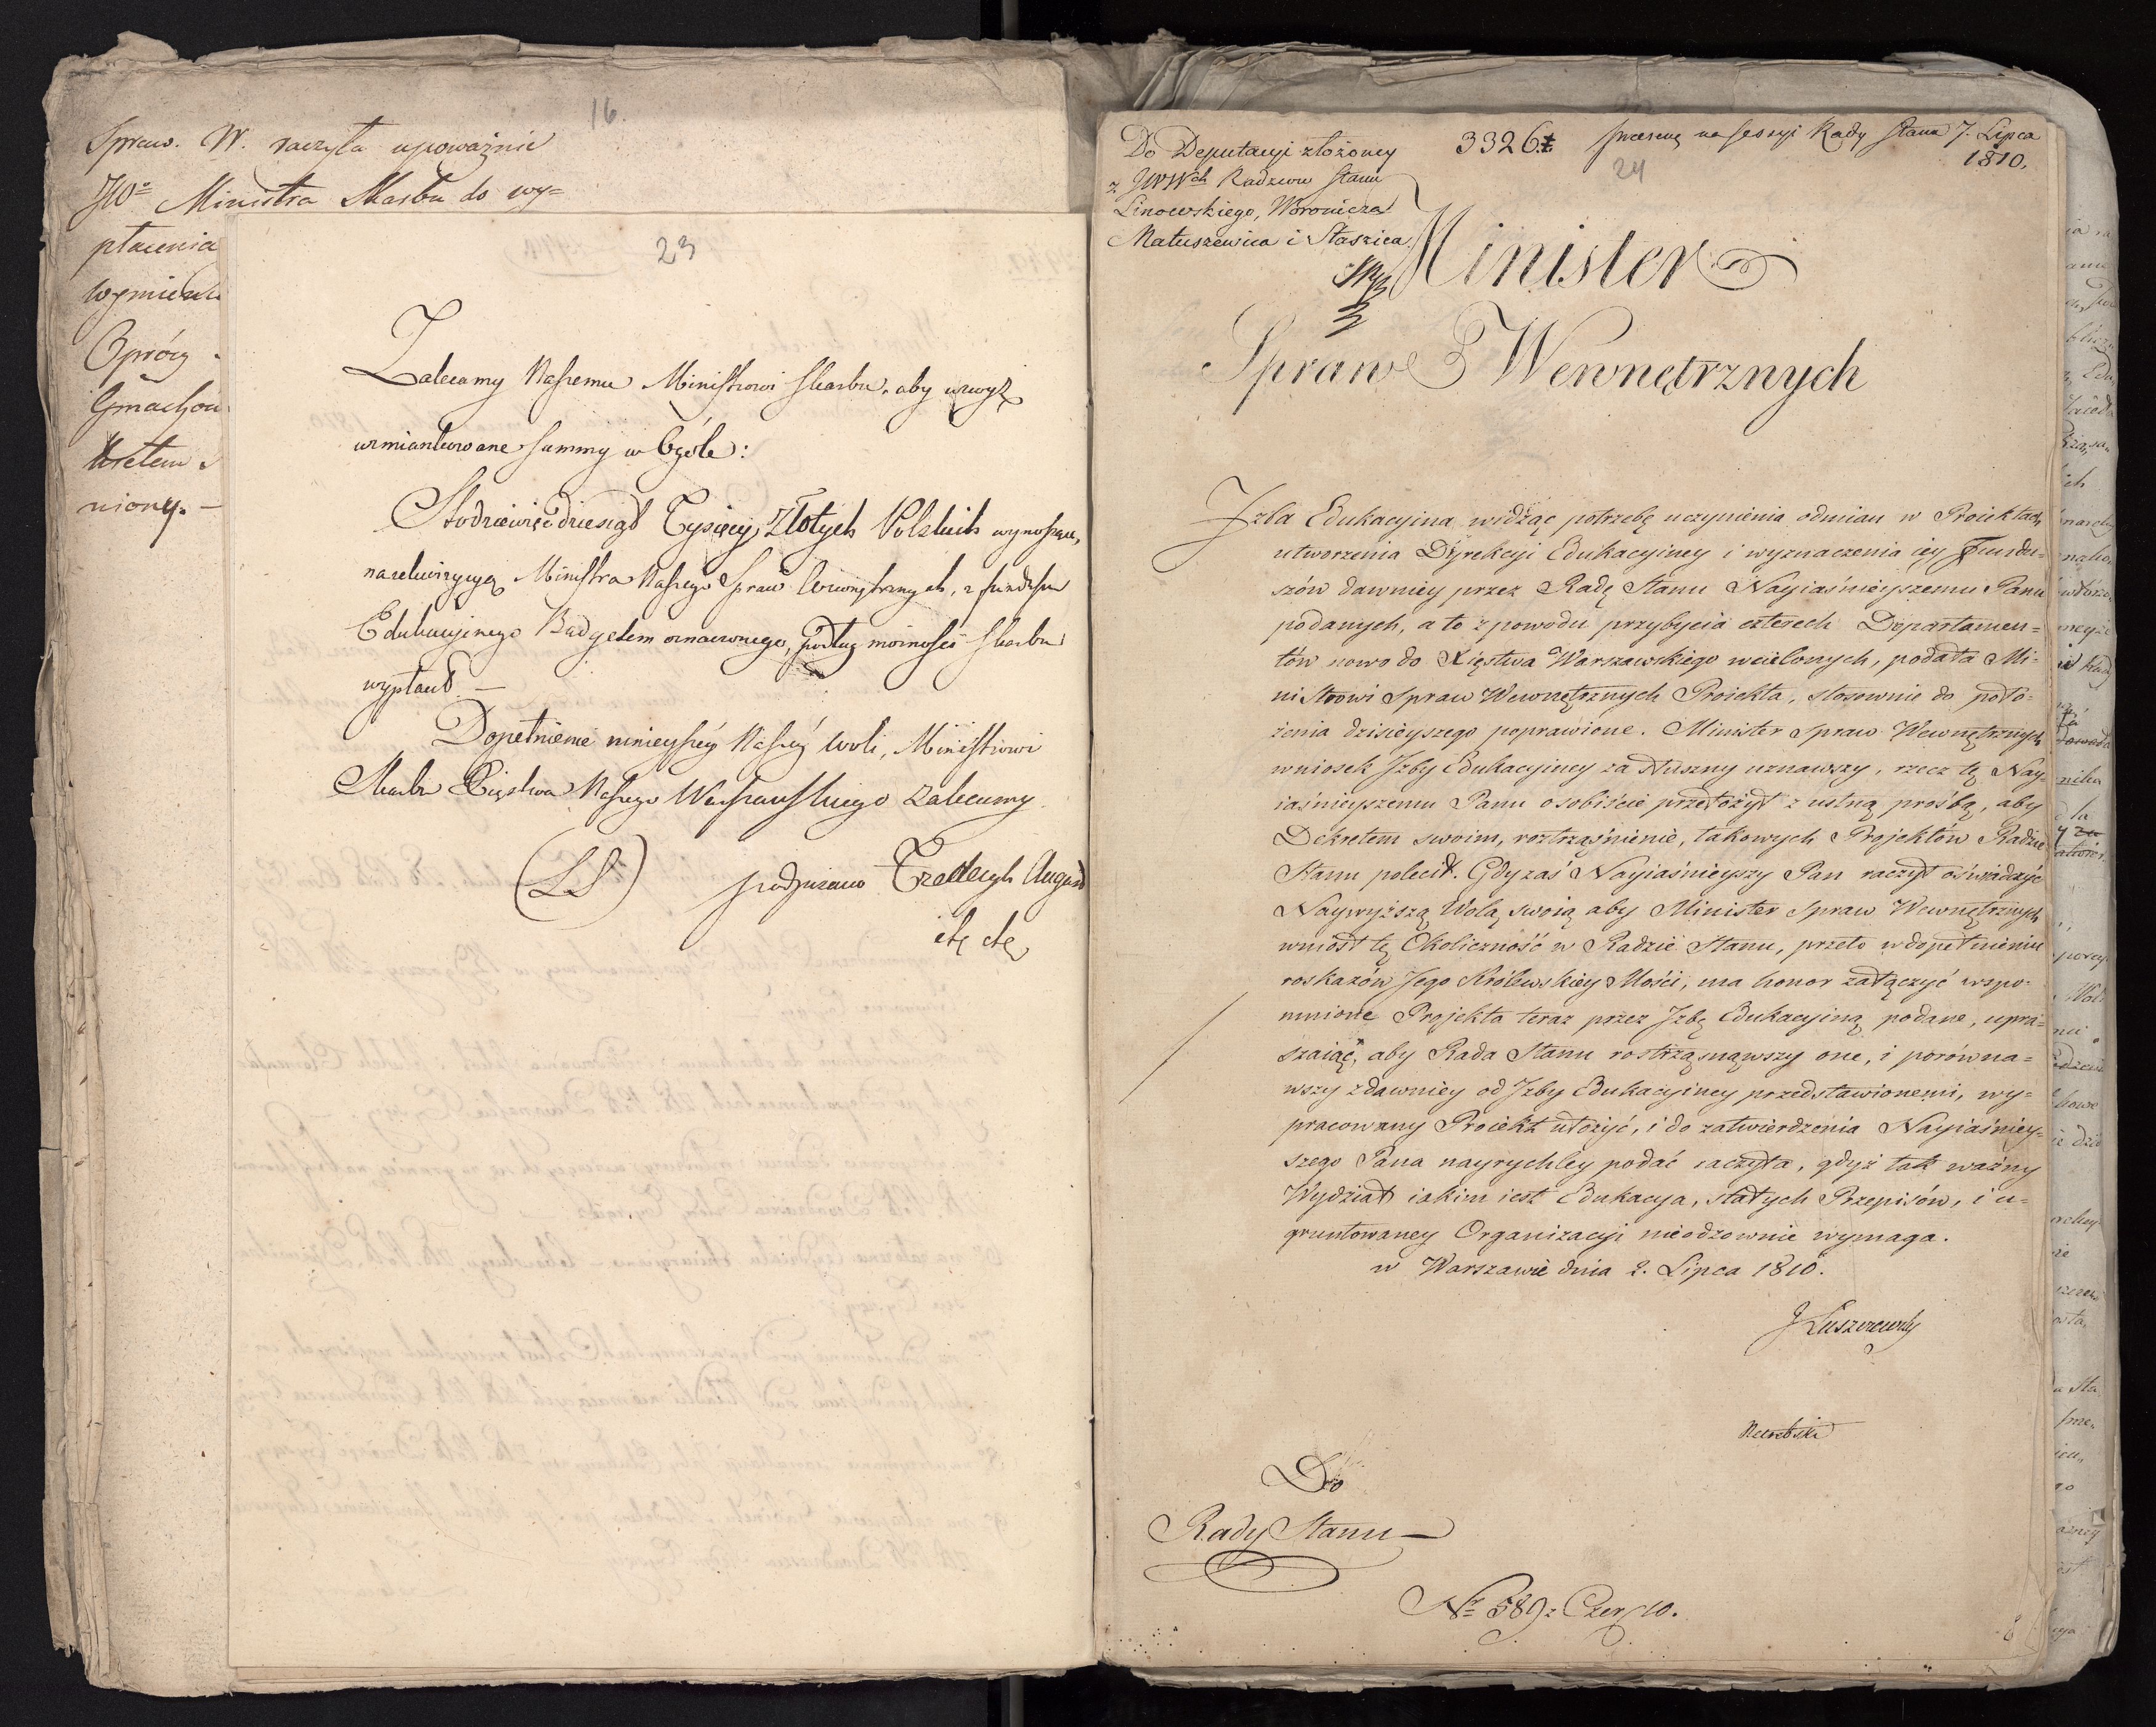 16.
Spraw. W. raczyła upoważnić
JW° Ministra Skarbu do wy=
płacenia
wymieni
Oprócz
Gmachow
niony. —
23
Zalecamy Naszemu Ministrowi Skarbu, aby wwyż
wzmiankowane summy w Ogóle:
Stodziewięćdziesiąt Tysięcy Złotych Polskich wynoszące,
na rekwizycyą Ministra Naszego Spraw Wewnętrznych, z funduszu
Edukacyinego Budgetem oznaczonego, podług możności Skarbu
wypłacił. —
Dopełnienie ninieyszéy Naszéy Woli, Ministrowi
Skarbu Xięstwa Naszego Warszawskiego zalecamy.
(LS) podpisano Fryderyk August
etc etc
Do Deputacyi złożoney
z JWWch Radzców Stanu
Linowskiego, Woronicza
Matuszewica i Staszica.
3326.
24
na sessyi Rady Stanu 7. Lipca
1810.
Minister
Spraw Wewnętrznych
Izba Edukacyina widząc potrzebę uczynienia odmian w Proiektach
utworzenia Dyrekcyi Edukacyiney i wyznaczenia iey Fundu=
szów dawniey przez Radę Stanu Nayiaśnieyszemu Panu
podanych, a to z powodu przybycia czterech Departamen=
tów nowo do Xięstwa Warszawskiego wcielonych, podała Mi=
nistrowi Spraw Wewnętrznych Proiekta, stosownie do poło=
żenia dzisieyszego poprawione. Minister Spraw Wewnętrznych
wniosek Izby Edukacyiney za słuszny uznawszy, rzecz tę Nay=
iaśnieyszemu Panu osobiście przełożył z ustną prośbą, aby
Dekretem swoim, roztrząśnienie, takowych Projektów Radzie
Stanu polecił. Gdy zaś Nayiaśnieyszy Pan raczył oświadczyć
Naywyższą Wolą swoią aby Minister Spraw Wewnętrznych
wniósł tę Okoliczność w Radzie Stanu, przeto w dopełnieniu
roskazów Jego Królewskiey Mości, ma honor załączyć wspo=
mnione Projekta teraz przez Izbę Edukacyiną podane, upra=
szaiąc, aby Rada Stanu rostrząsnąwszy one, i porówna=
wszy z dawniey od Izby Edukacyiney przedstawionemi, wy=
pracowany Proiekt ułożyć, i do zatwierdzenia Nayiaśniey=
szego Pana nayrychley podać raczyła, gdyż tak ważny
Wydział iakim iest Edukacya, stałych Przepisów, i u=
gruntowaney Organizacyi nieodzownie wymaga.
w Warszawie dnia 2. Lipca 1810.
J Łuszczewski
Do
Rady Stanu —
Nr 589 z Czer 10.